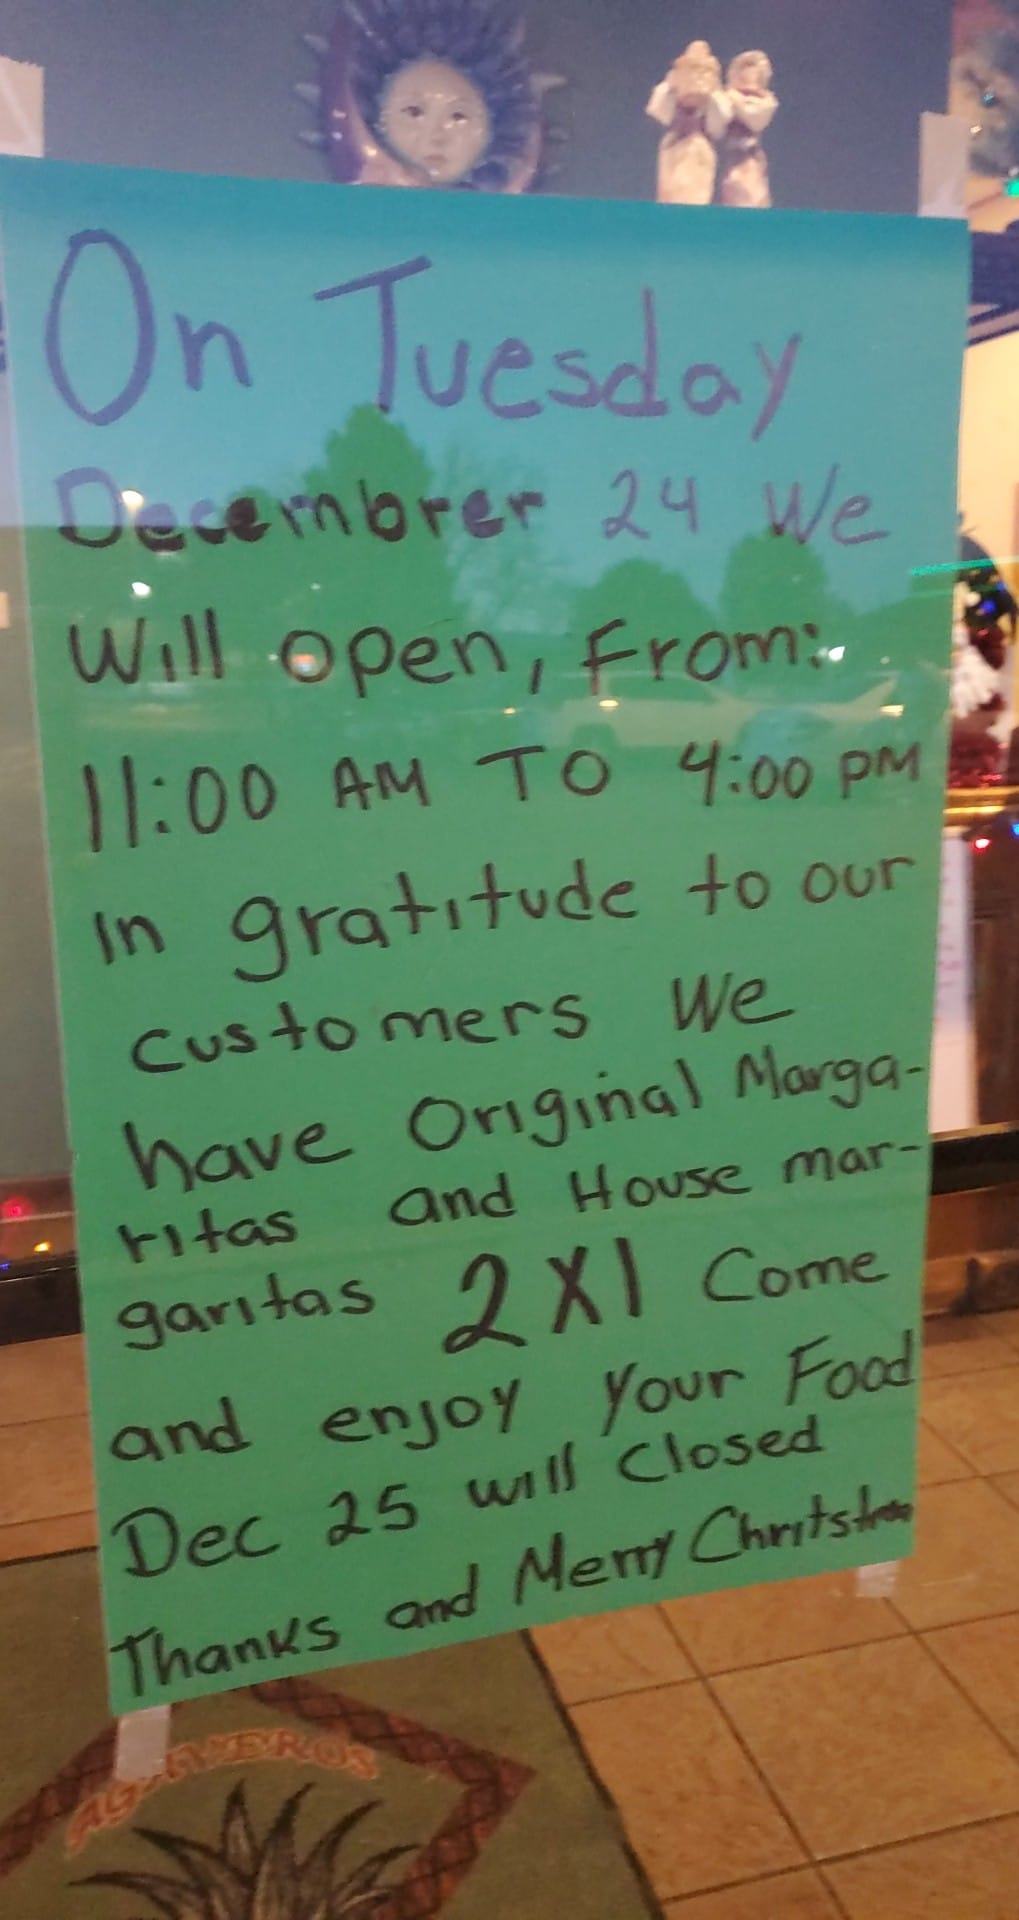 On Tuesday
Decembrer 24 We
Will open, From:
11:00 AM TO 4:00 PM
In gratitude to our
customers We
have Original Marga-
ritas and House mar-
garitas 2X1 Come
and enjoy Your Food
Dec 25 will Closed
Thanks and Merry
AGAVEROS